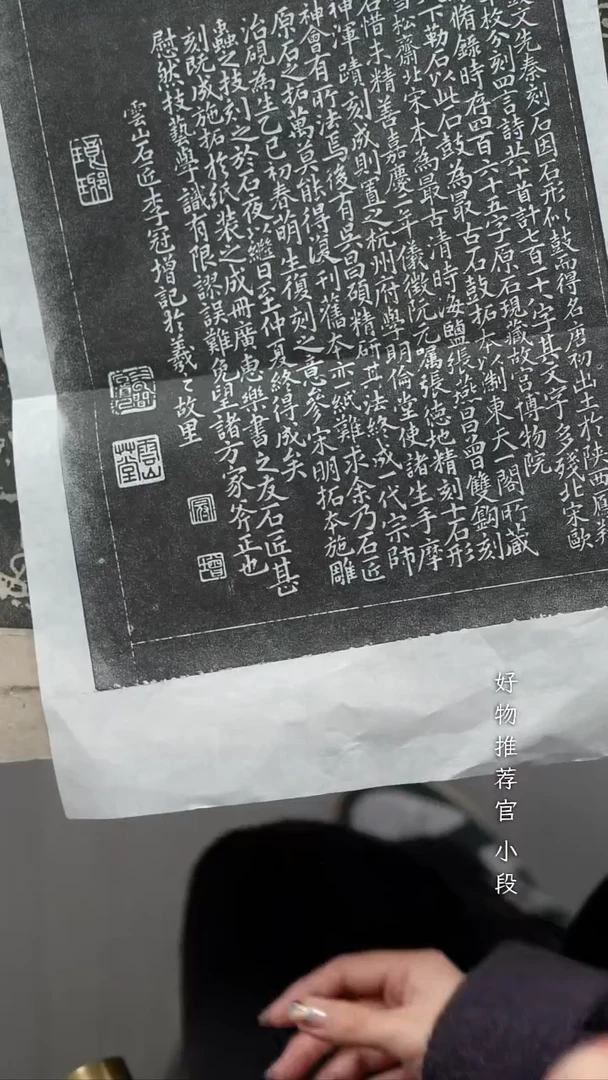 文先秦刻石因石形似鼓而得名唐初出土於陝西鳳翔
枚分刻四言詩共十首計七百十八字其文字多殘北宋歐
脩錄時存四百六十五字原石現藏故宮博物院
下勒石以此石鼓為最古石鼓拓本以制東天一閣所藏
松齋北宋本為最古清時海鹽張燕昌曾雙鉤刻
石惜未精善嘉慶二年儀徵阮元囑張德地精刻十石形
神渾蹟刻成則置之杭州府學明倫堂使諸生手摩
神會有所法焉後有吳昌碩精研其法終成一代宗師
原石之拓萬莫能得復刊舊本亦一紙難求余乃石匠
治硯為生乙巳初春萌生復刻之意參宋明拓本施雕
蟲之技刻之於石夜以繼日至仲夏終得成矣
刻既成施拓於紙裝之成冊廣惠樂書之友石匠甚
慰然技藝學識有限認誤難免望諸方家斧正也
雲山石匠李冠增記於羲〻故里
冠
增
好物推荐官 小段